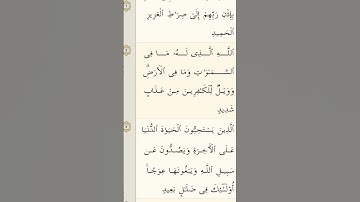 بِإِذْنِ رَبِّهِمْ إِلَىٰ صِرَٰطِ ٱلْعَزِيزِ
ٱلْحَمِيدِ
ٱللَّهِ ٱلَّذِى لَهُۥ مَا فِى
ٱلسَّمَٰوَٰتِ وَمَا فِى ٱلْأَرْضِ
وَوَيْلٌ لِّلْكَٰفِرِينَ مِنْ عَذَابٍ
شَدِيدٍ
ٱلَّذِينَ يَسْتَحِبُّونَ ٱلْحَيَوٰةَ ٱلدُّنْيَا
عَلَى ٱلْءَاخِرَةِ وَيَصُدُّونَ عَن
سَبِيلِ ٱللَّهِ وَيَبْغُونَهَا عِوَجًا
أُو۟لَٰٓئِكَ فِى ضَلَٰلٍۭ بَعِيدٍ